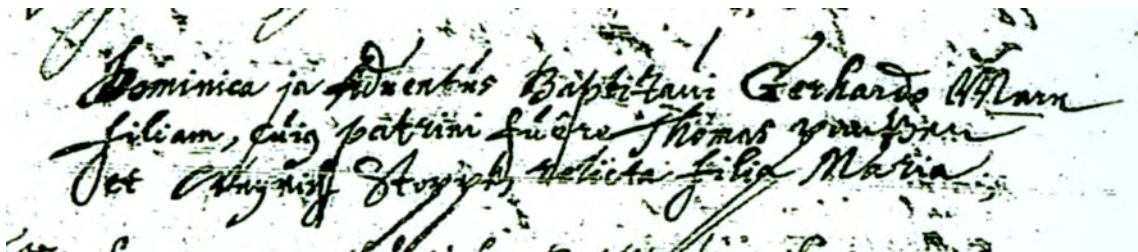 Dominica ja Aduentus Baptizaui Gerhardo Marn
filiam, cuig patrini fuêre Thomas
et Stoppes relicta filia Maria.